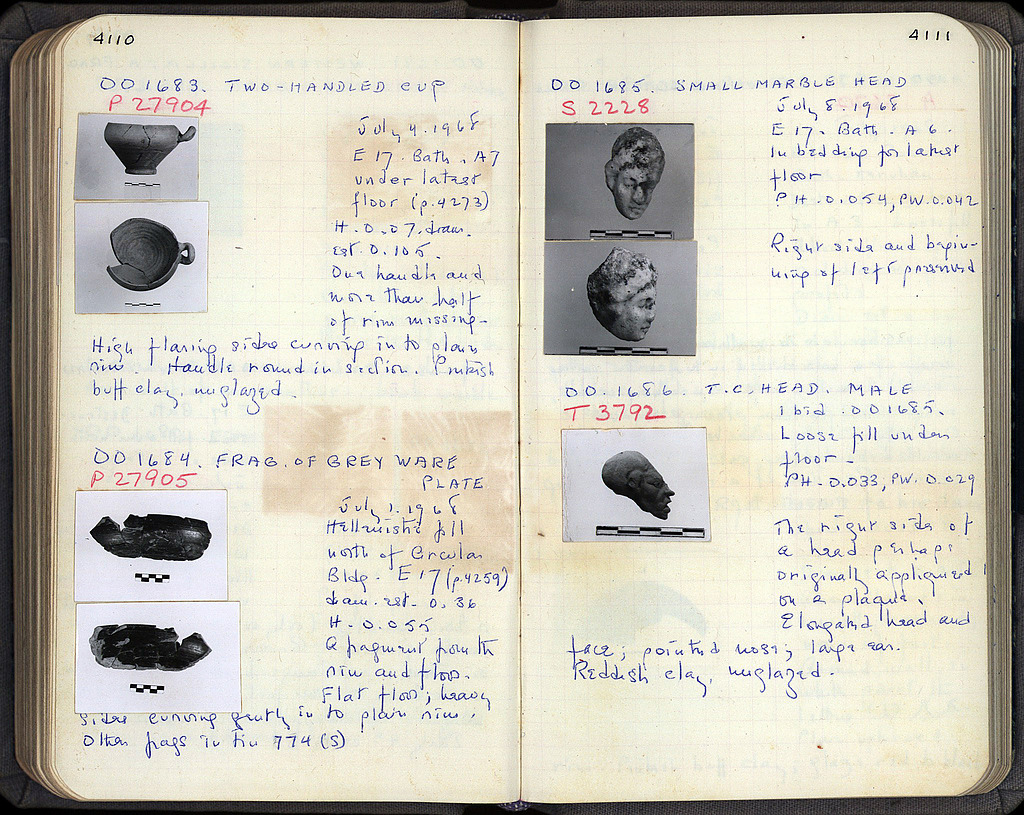 4110
OO 1683. TWO-HANDLED CUP
P 27904
July 4.1968
E 17. Bath. A7
under latest
floor (p.4273)
H. 0.07, diam.
est. 0.105.
One handle and
more than half
of rim missing-
High flaring sides curving in to plain
rim. Handle round in section. Pinkish
buff clay, unglazed.
OO 1684. FRAG. OF GREY WARE
PLATE
P 27905
July 1.1968
Hellenistic fill
north of Circular
Bldg. E 17 (p.4259)
diam. est. 0.36
H. 0.055
A fragment from the
rim and floor.
Flat floor; heavy
sides curving gently in to plain rim.
Other frags in tin 774 (S)
4111
OO 1685 SMALL MARBLE HEAD
S 2228
July 8.1968
E 17. Bath. A 6.
In bedding for latest
floor
PH. 0.054, PW. 0.042
Right side and begin-
ning of left preserved
OO.1686. T.C. HEAD. MALE
T 3792
ibid. OO1685.
Loose fill under
floor-
PH. 0.033, PW. 0.029
The right side of
a head perhaps
originally appliqued
on a plaque.
Elongated head and
face; pointed nose; large ear.
Reddish clay, unglazed.